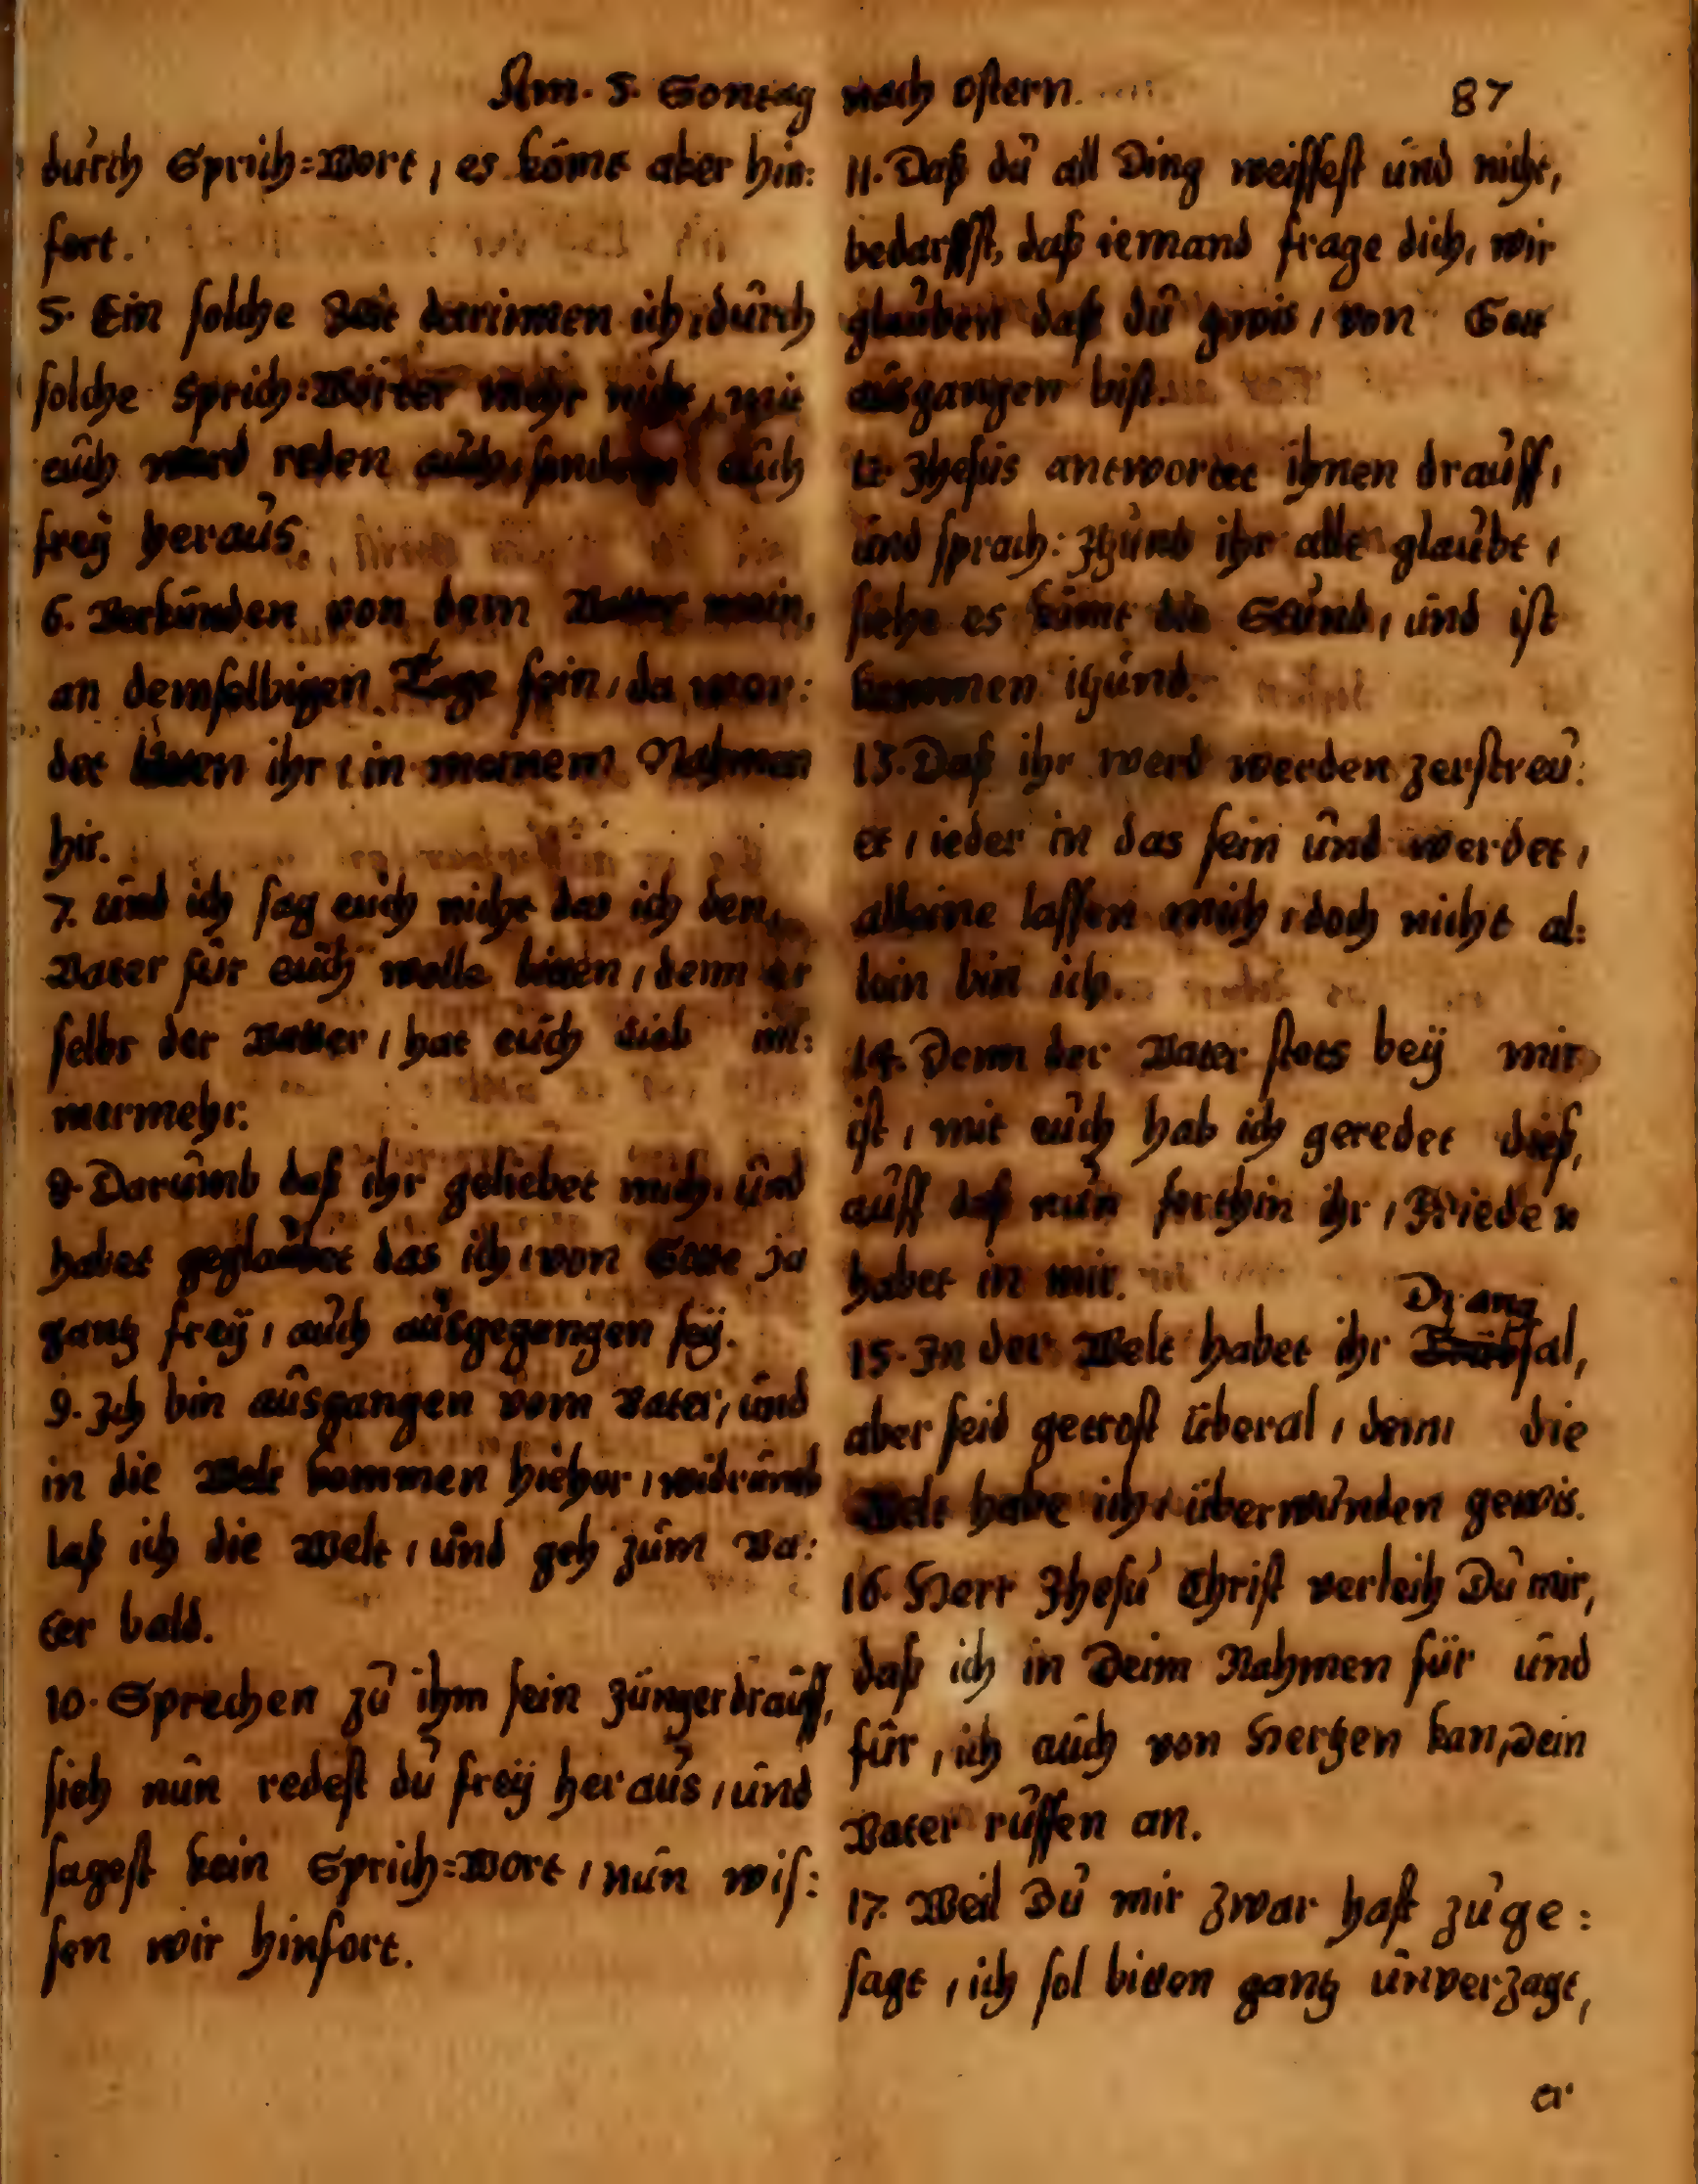 Am. 5. Sontag nach ostern. 87
durch Sprich=Wort, es kömt aber hin:
fort.
5. Ein solche Zeit darinnen ich, durch
solche Sprich=Wörter mehr nicht, mit
euch werd reden auch, sondern auch
freÿ heraus.
6. Verkünden von dem Vatter mein,
an demselbigen Tage sein, da wer:
det bitten ihr, in meinem Nahmen
hir.
7. und ich sag euch nicht das ich den,
Vater für euch wolle bitten, denn er
selbs der Vatter, hat euch lieb im:
mermehr.
8. Darumb daß ihr geliebet mich, und
habet geglaubet das ich, von Gotte ja
gantz freÿ, auch ausgegangen seÿ.
9. Ich bin ausgangen vom Vater, und
in die Welt kommen hieher, widrumb
laß ich die Welt, und geh zum Va:
ter bald.
10. Sprechen zu ihm sein Jünger drauff,
sieh nun redest du freÿ heraus, und
sagest kein Sprich=Wort, nun wis:
sen wir hinfort.
11. Daß du all Ding weissest und nicht,
bedarffst, daß iemand frage dich, wir
glauben daß du gwis, von Gott
ausgangen bist.
12. Jhesus antwortet ihnen drauff,
und sprach: Jtzund ihr alle glaubt,
siehe es kömt die Stund, und ist
kommen itzund.
13. Daß ihr werd werden zerstreu:
et, ieder in das sein und werdet,
alleine lassen mich, doch nicht al:
lein bin ich.
14. Denn der Vater stets beÿ mir
ist, mit euch hab ich geredet dieß,
auff daß nun forthin ihr, Frieden
habet in mir.
Drang
15. In der Welt habet ihr Trübsal,
aber seid getrost überal, denn die
Welt habe ich, überwunden gewis.
16. Herr Jhesu Christ verleih Du mir,
daß ich in Deim Nahmen für und
für, ich auch von Hertzen kan, Dein
Vater ruffen an.
17. Weil Du mir zwar hast zuge:
sagt, ich sol bitten gantz unverzagt,
er